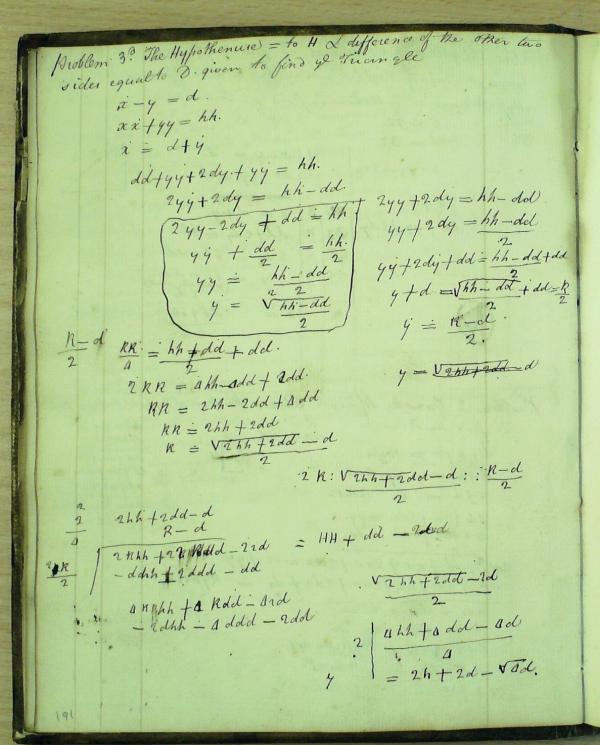 Problem 3d. The Hypothenuse = to H & difference of the other two
sides equal to D. given to find ye Triangle
x - y = d.
xx + yy = hh.
x = d + y
dd + yy + 2dy + yy = hh.
2yy + 2dy = hh - dd.
2yy - 2dy + dd = hh
yy + dd/2 = hh/2
yy = hh - dd/2
y = √hh - dd/2
2yy + 2dy = hh - dd
yy + 2dy = hh - dd/2
yy + 2dy + dd = hh - dd/2 + dd
y + d = √hh - dd/2 + dd = R/2
y = R - d/2.
y = √2hh + 2dd - d
R - d/2
RR/4 = hh + dd/2 + dd.
2RR = 4hh - 4dd + 2dd.
RR = 2hh - 2dd + 4dd
RR = 2hh + 2dd
R = √2hh + 2dd - d/2
2R : √2hh + 2dd - d/2 :: R - d/2
2hh + 2dd - d
R - d
= HH + dd
√2hh + 2dd - 2d/2
- 2dhh - 4ddd - 2dd
2 | 4hh + 4dd - 4d/4
y = 2h + 2d - √4d.
191